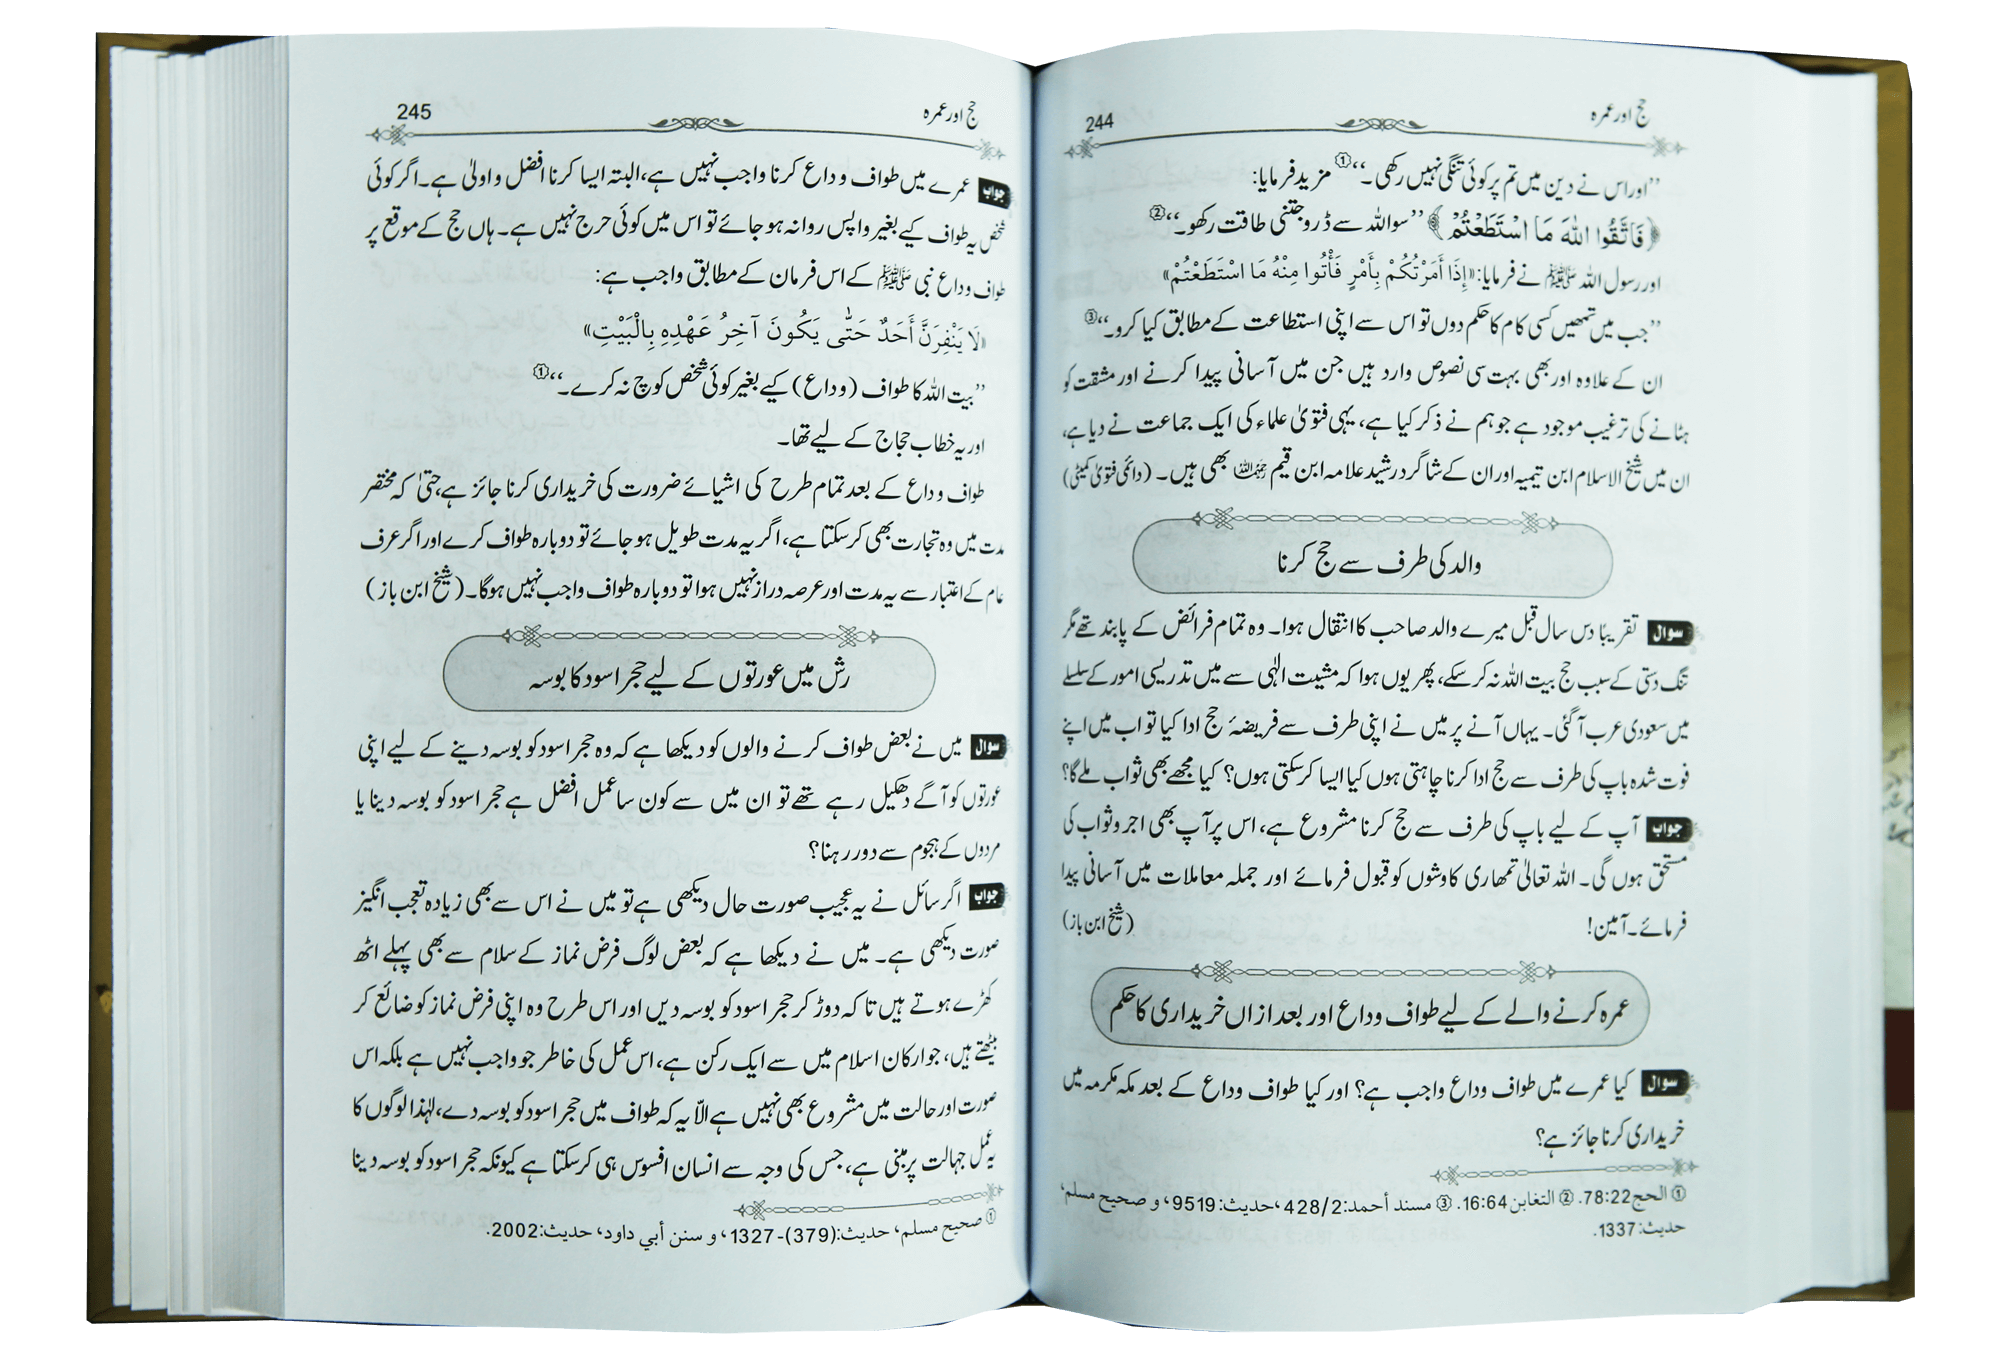 حج اور عمرہ
244
”اور اس نے دین میں تم پر کوئی تنگی نہیں رکھی۔“① مزید فرمایا:
﴿فَاتَّقُوا اللّٰهَ مَا اسْتَطَعْتُمْ﴾ ”سو اللہ سے ڈرو جتنی طاقت رکھو۔“②
اور رسول اللہ ﷺ نے فرمایا: «إِذَا أَمَرْتُكُمْ بِأَمْرٍ فَأْتُوا مِنْهُ مَا اسْتَطَعْتُمْ»
”جب میں تمھیں کسی کام کا حکم دوں تو اس سے اپنی استطاعت کے مطابق کیا کرو۔“③
ان کے علاوہ اور بھی بہت سی نصوص وارد ہیں جن میں آسانی پیدا کرنے اور مشقت کو
ہٹانے کی ترغیب موجود ہے جو ہم نے ذکر کیا ہے، یہی فتویٰ علماء کی ایک جماعت نے دیا ہے،
ان میں شیخ الاسلام ابن تیمیہ اور ان کے شاگرد رشید علامہ ابن قیم رحمہما اللہ بھی ہیں۔ (دائمی فتویٰ کمیٹی)
والد کی طرف سے حج کرنا
سوال تقریبًا دس سال قبل میرے والد صاحب کا انتقال ہوا۔ وہ تمام فرائض کے پابند تھے مگر
تنگ دستی کے سبب حج بیت اللہ نہ کر سکے، پھر یوں ہوا کہ مشیت الٰہی سے میں تدریسی امور کے سلسلے
میں سعودی عرب آ گئی۔ یہاں آنے پر میں نے اپنی طرف سے فریضۂ حج ادا کیا تو اب میں اپنے
فوت شدہ باپ کی طرف سے حج ادا کرنا چاہتی ہوں کیا ایسا کر سکتی ہوں؟ کیا مجھے بھی ثواب ملے گا؟
جواب آپ کے لیے باپ کی طرف سے حج کرنا مشروع ہے، اس پر آپ بھی اجر و ثواب کی
مستحق ہوں گی۔ اللہ تعالیٰ تمھاری کاوشوں کو قبول فرمائے اور جملہ معاملات میں آسانی پیدا
فرمائے۔ آمین! (شیخ ابن باز)
عمرہ کرنے والے کے لیے طواف وداع اور بعد ازاں خریداری کا حکم
سوال کیا عمرے میں طواف وداع واجب ہے؟ اور کیا طواف وداع کے بعد مکہ مکرمہ میں
خریداری کرنا جائز ہے؟
① الحج 78:22. ② التغابن 16:64. ③ مسند أحمد: 428/2، حدیث: 9519، و صحیح مسلم،
حدیث: 1337.
حج اور عمرہ
245
جواب عمرے میں طواف وداع کرنا واجب نہیں ہے، البتہ ایسا کرنا افضل و اولیٰ ہے۔ اگر کوئی
شخص یہ طواف کیے بغیر واپس روانہ ہو جائے تو اس میں کوئی حرج نہیں ہے۔ ہاں حج کے موقع پر
طواف وداع نبی ﷺ کے اس فرمان کے مطابق واجب ہے:
«لَا يَنْفِرَنَّ أَحَدٌ حَتّٰى يَكُونَ آخِرُ عَهْدِهِ بِالْبَيْتِ»
”بیت اللہ کا طواف (وداع) کیے بغیر کوئی شخص کوچ نہ کرے۔“①
اور یہ خطاب حجاج کے لیے تھا۔
طواف وداع کے بعد تمام طرح کی اشیائے ضرورت کی خریداری کرنا جائز ہے، حتیٰ کہ مختصر
مدت میں وہ تجارت بھی کر سکتا ہے، اگر یہ مدت طویل ہو جائے تو دوبارہ طواف کرے اور اگر عرف
عام کے اعتبار سے یہ مدت اور عرصہ دراز نہیں ہوا تو دوبارہ طواف واجب نہیں ہوگا۔ (شیخ ابن باز)
رش میں عورتوں کے لیے حجر اسود کا بوسہ
سوال میں نے بعض طواف کرنے والوں کو دیکھا ہے کہ وہ حجر اسود کو بوسہ دینے کے لیے اپنی
عورتوں کو آگے دھکیل رہے تھے تو ان میں سے کون سا عمل افضل ہے حجر اسود کو بوسہ دینا یا
مردوں کے ہجوم سے دور رہنا؟
جواب اگر سائل نے یہ عجیب صورت حال دیکھی ہے تو میں نے اس سے بھی زیادہ تعجب انگیز
صورت دیکھی ہے۔ میں نے دیکھا ہے کہ بعض لوگ فرض نماز کے سلام سے بھی پہلے اٹھ
کھڑے ہوتے ہیں تاکہ دوڑ کر حجر اسود کو بوسہ دیں اور اس طرح وہ اپنی فرض نماز کو ضائع کر
بیٹھتے ہیں، جو ارکان اسلام میں سے ایک رکن ہے، اس عمل کی خاطر جو واجب نہیں ہے بلکہ اس
صورت اور حالت میں مشروع بھی نہیں ہے الّا یہ کہ طواف میں حجر اسود کو بوسہ دے، لہٰذا لوگوں کا
یہ عمل جہالت پر مبنی ہے، جس کی وجہ سے انسان افسوس ہی کر سکتا ہے کیونکہ حجر اسود کو بوسہ دینا
① صحیح مسلم، حدیث: (379)-1327، و سنن أبي داود، حدیث: 2002.